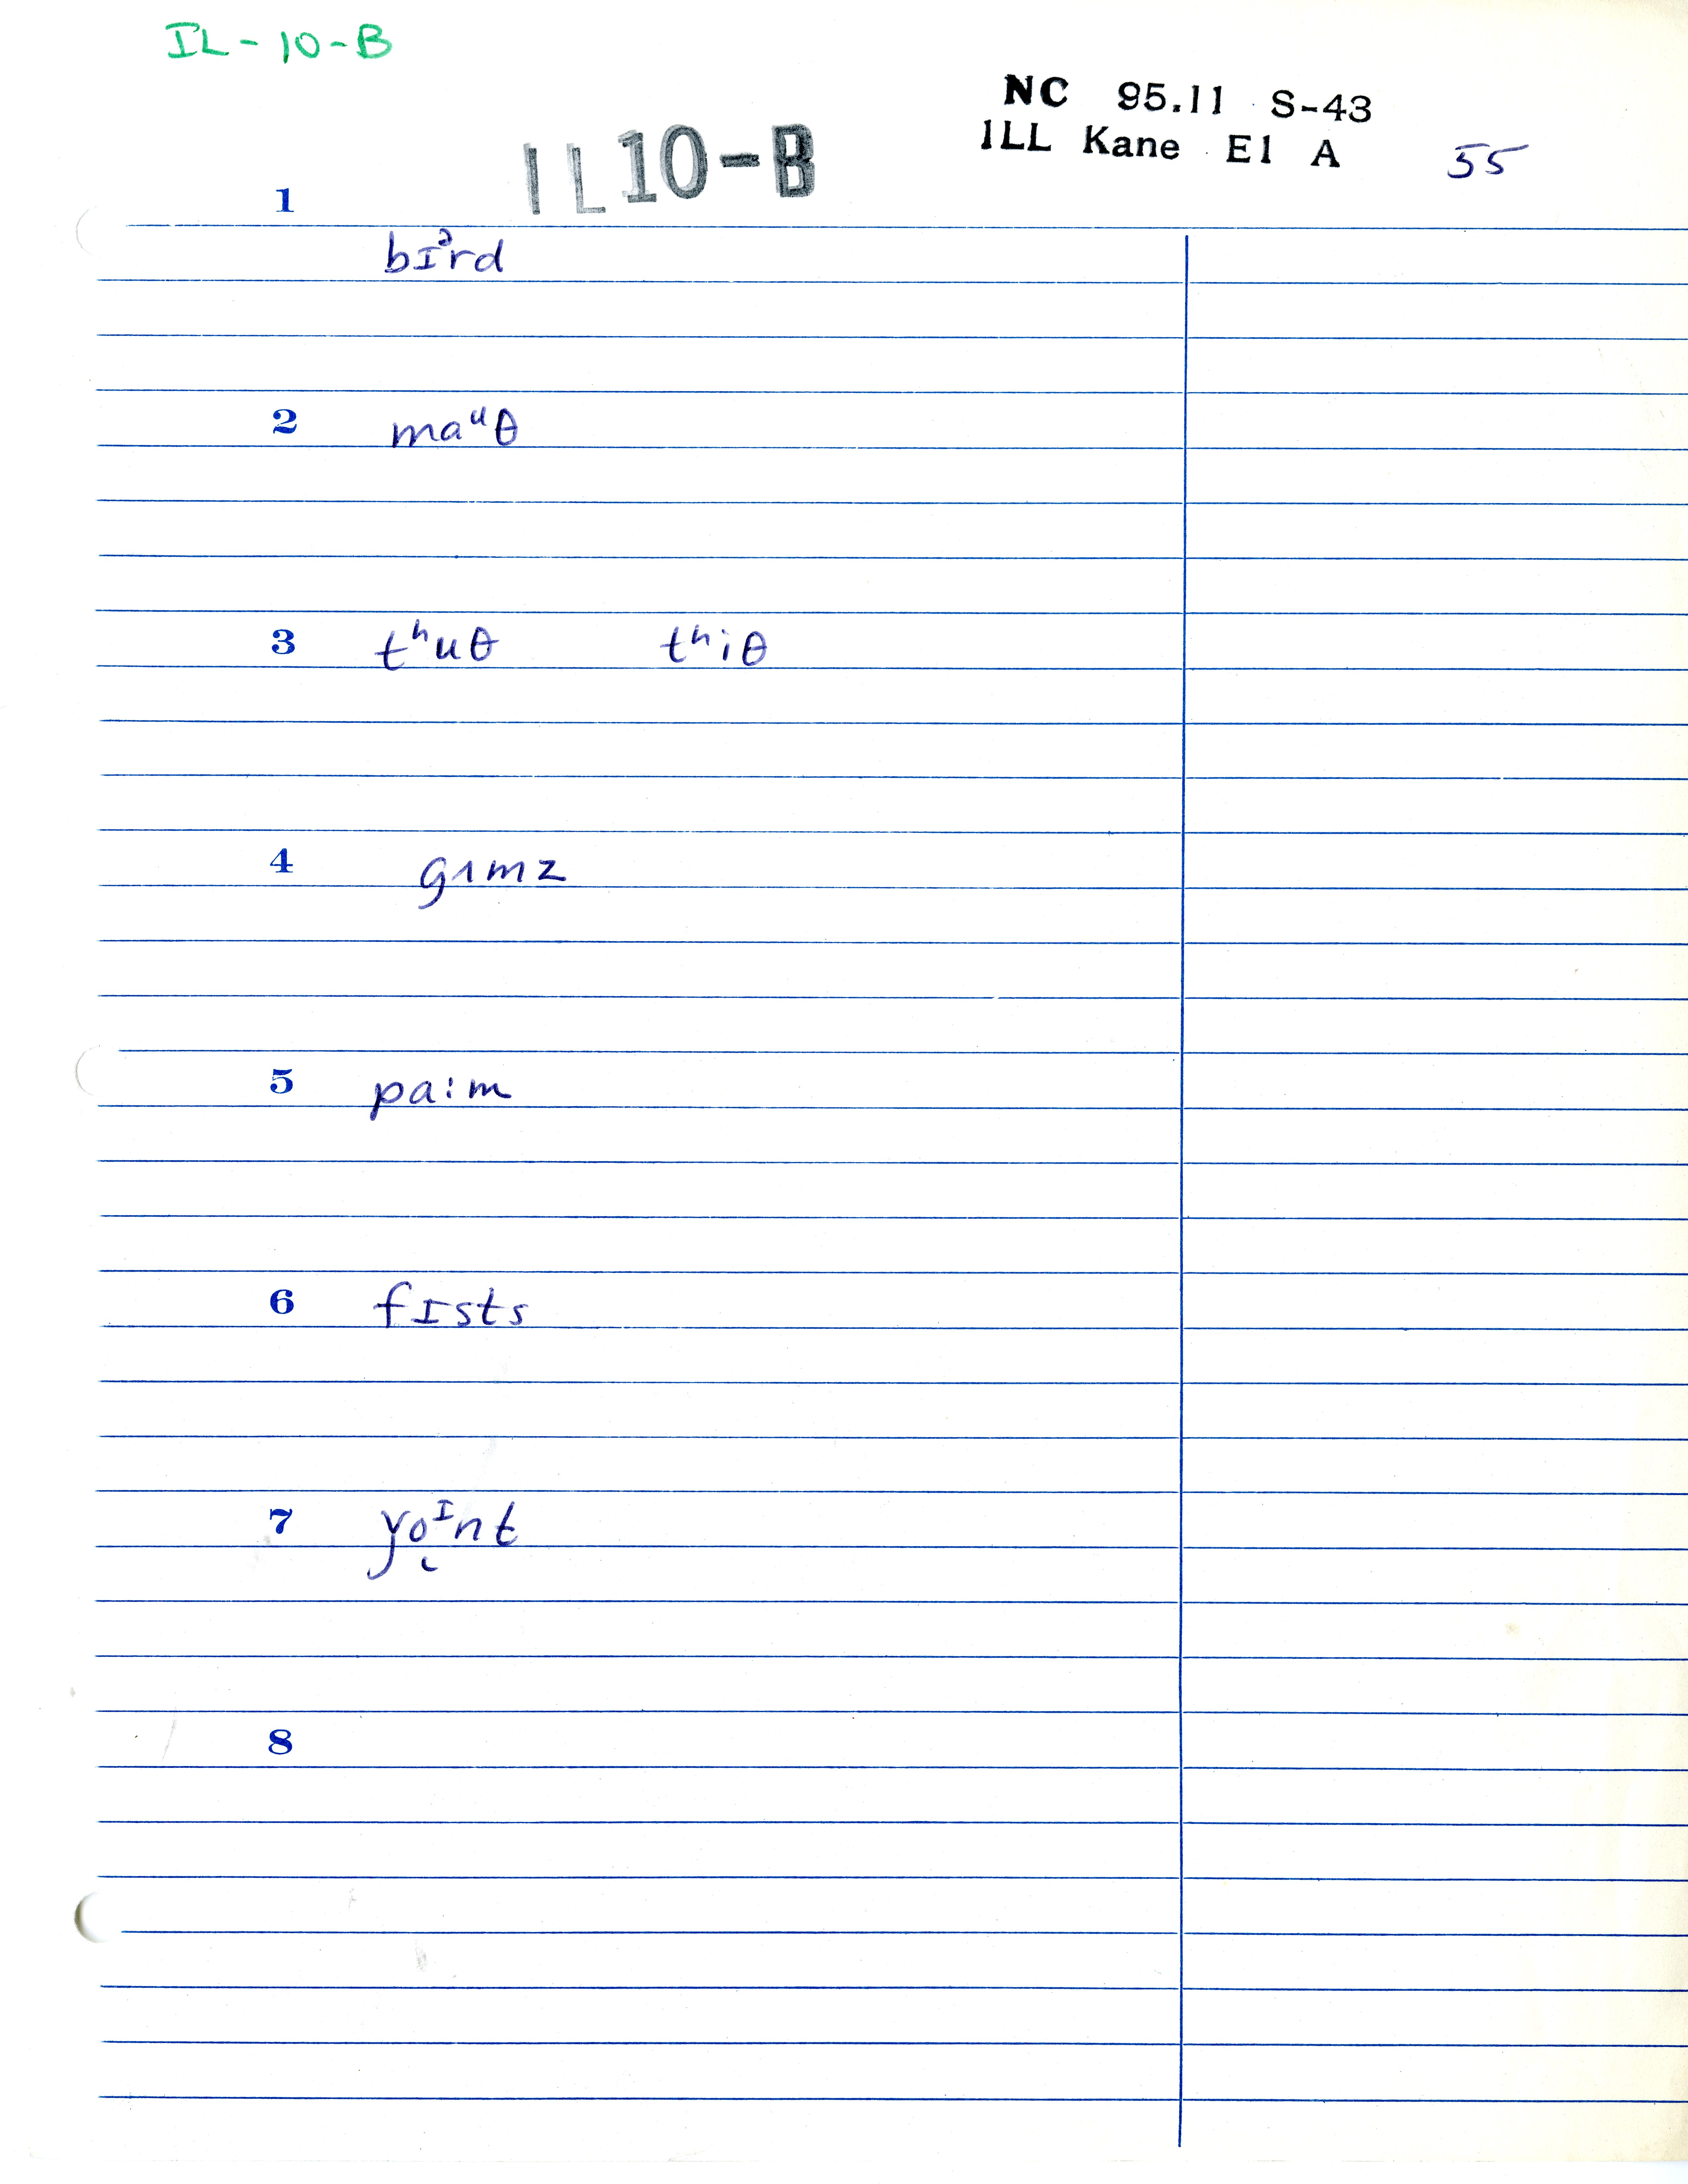 IL-10-B
NC 95.11 S-43
ILL Kane El A 55
IL10-B
1
bɪᵊrd
2 maᵘθ
3 tʰuθ tʰiθ
4 gʌmz
5 pa:m
6 fɪsts
7 yo̜ᶦnt
8